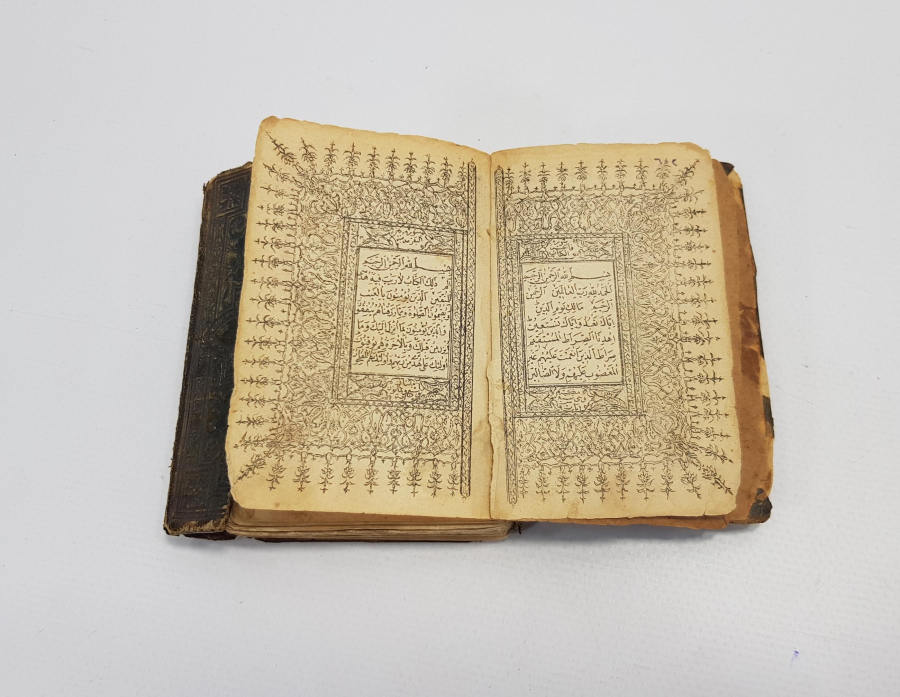 بسم الله الرحمن الرحيم
الحمد لله رب العالمين الرحمن
الرحيم مالك يوم الدين
اياك نعبد واياك نستعين
اهدنا الصراط المستقيم
صراط الذين انعمت عليهم غير
المغضوب عليهم ولا الضالين
بسم الله الرحمن الرحيم
الم ذلك الكتاب لا ريب فيه هدى
للمتقين الذين يؤمنون بالغيب
ويقيمون الصلوة ومما رزقناهم ينفقون
والذين يؤمنون بما انزل اليك وما
انزل من قبلك وبالآخرة هم يوقنون
اولئك على هدى من ربهم واولئك هم المفلحون